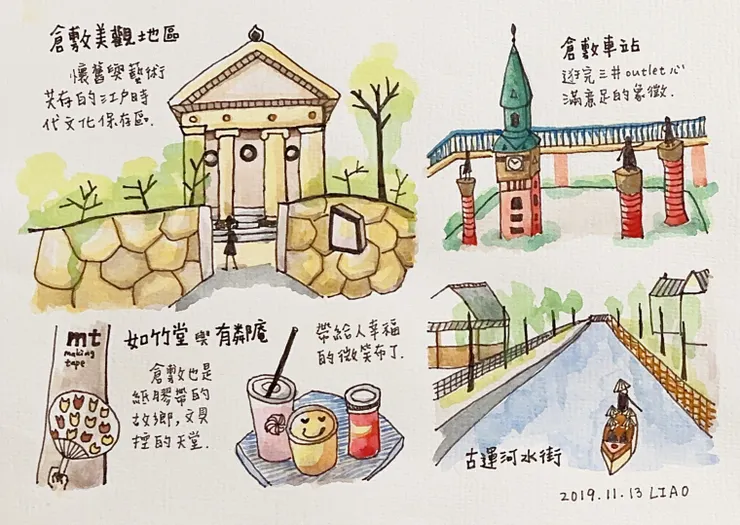 倉敷美觀地區
懷舊與藝術
共存的江戶時
代文化保存區.
倉敷車站
逛完三井outlet心
滿意足的象徵.
mt
making
tape
如竹堂與有鄰庵
倉敷也是
紙膠帶的
故鄉,文具
控的天堂.
帶給人幸福
的微笑布丁.
古運河水街
2019.11.13 LIAO